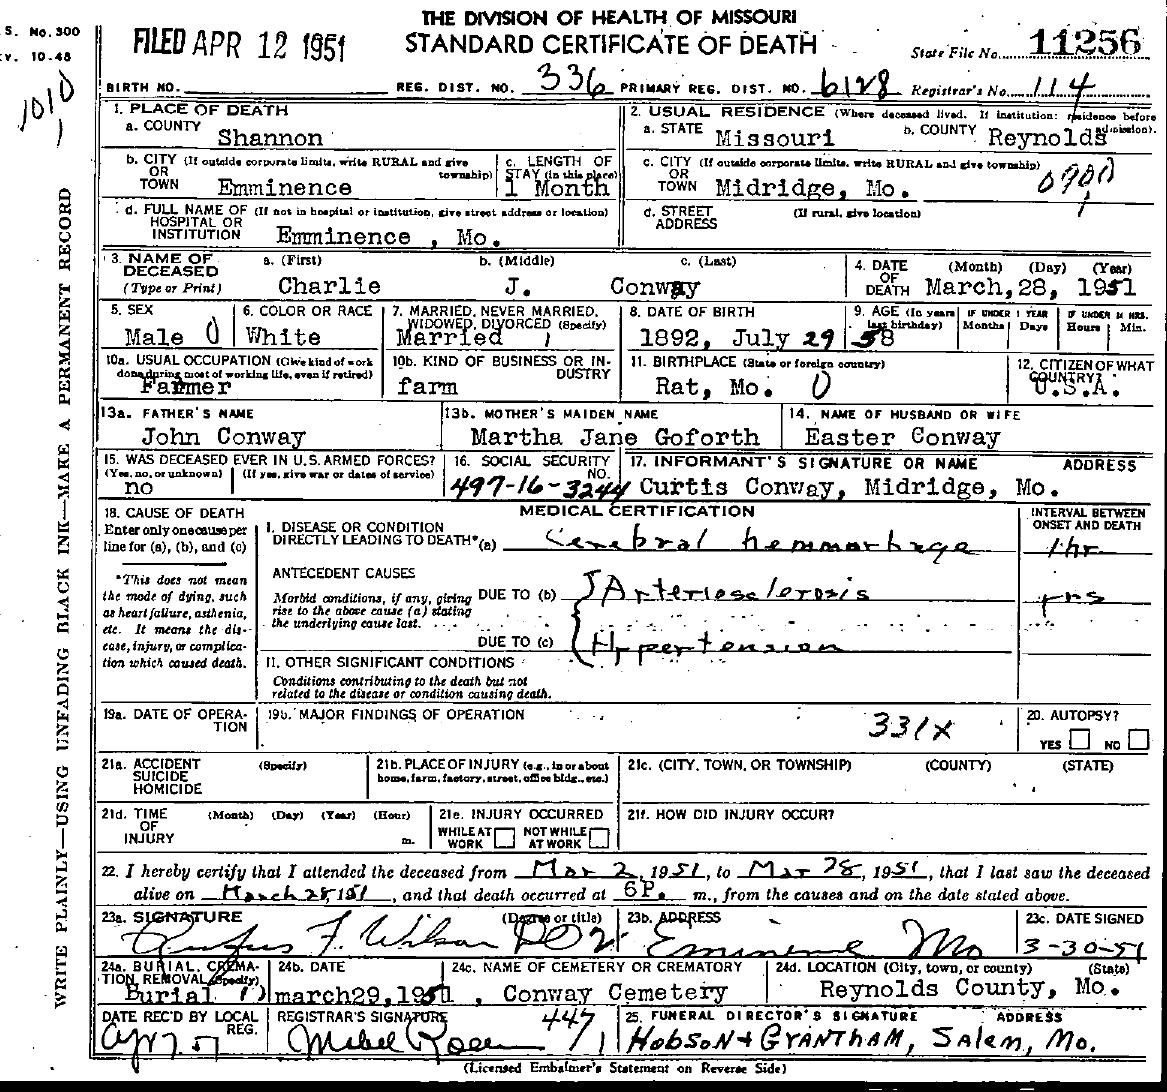 THE DIVISION OF HEALTH OF MISSOURI
S. No. 300
FILED APR 12 1951 STANDARD CERTIFICATE OF DEATH State File No. 11256
v. 10-48
1010
1
BIRTH NO. REG. DIST. NO. 336 PRIMARY REG. DIST. NO. 6128 Registrar's No. 114
WRITE PLAINLY—USING UNFADING BLACK INK—MAKE A PERMANENT RECORD
1. PLACE OF DEATH
a. COUNTY Shannon
2. USUAL RESIDENCE (Where deceased lived. If institution: residence before admission).
a. STATE Missouri b. COUNTY Reynolds
b. CITY (If outside corporate limits, write RURAL and give township)
OR
TOWN Emminence
c. LENGTH OF
STAY (in this place)
1 Month
c. CITY (If outside corporate limits, write RURAL and give township)
OR
TOWN Midridge, Mo. 0900
1
d. FULL NAME OF (If not in hospital or institution, give street address or location)
HOSPITAL OR
INSTITUTION Emminence , Mo.
d. STREET (If rural, give location)
ADDRESS
3. NAME OF DECEASED
(Type or Print)
a. (First) b. (Middle) c. (Last)
Charlie J. Conway
4. DATE OF DEATH (Month) (Day) (Year)
March, 28, 1951
5. SEX
Male 0
6. COLOR OR RACE
White
7. MARRIED, NEVER MARRIED,
WIDOWED, DIVORCED (Specify)
Married 1
8. DATE OF BIRTH
1892, July 29
9. AGE (In years last birthday)
58
IF UNDER 1 YEAR
Months Days
IF UNDER 24 HRS.
Hours Min.
10a. USUAL OCCUPATION (Give kind of work
done during most of working life, even if retired)
Farmer
10b. KIND OF BUSINESS OR INDUSTRY
farm
11. BIRTHPLACE (State or foreign country)
Rat, Mo. 0
12. CITIZEN OF WHAT
COUNTRY?
U.S.A.
13a. FATHER'S NAME
John Conway
13b. MOTHER'S MAIDEN NAME
Martha Jane Goforth
14. NAME OF HUSBAND OR WIFE
Easter Conway
15. WAS DECEASED EVER IN U.S. ARMED FORCES?
(Yes, no, or unknown) (If yes, give war or dates of service)
no
16. SOCIAL SECURITY
NO.
497-16-3244
17. INFORMANT'S SIGNATURE OR NAME ADDRESS
Curtis Conway, Midridge, Mo.
18. CAUSE OF DEATH
Enter only one cause per
line for (a), (b), and (c)
*This does not mean
the mode of dying, such
as heart failure, asthenia,
etc. It means the dis-
ease, injury, or complica-
tion which caused death.
MEDICAL CERTIFICATION
INTERVAL BETWEEN
ONSET AND DEATH
I. DISEASE OR CONDITION
DIRECTLY LEADING TO DEATH*(a) Cerebral hemmorhage 1 hr
ANTECEDENT CAUSES
Morbid conditions, if any, giving
rise to the above cause (a) stating
the underlying cause last.
DUE TO (b) Arteriosclerosis yrs
DUE TO (c) Hypertension
II. OTHER SIGNIFICANT CONDITIONS
Conditions contributing to the death but not
related to the disease or condition causing death.
19a. DATE OF OPERA-
TION
19b. MAJOR FINDINGS OF OPERATION
331X
20. AUTOPSY?
YES NO
21a. ACCIDENT (Specify)
SUICIDE
HOMICIDE
21b. PLACE OF INJURY (e.g., in or about
home, farm, factory, street, office bldg., etc.)
21c. (CITY, TOWN, OR TOWNSHIP) (COUNTY) (STATE)
21d. TIME (Month) (Day) (Year) (Hour)
OF
INJURY m.
21e. INJURY OCCURRED
WHILE AT WORK NOT WHILE AT WORK
21f. HOW DID INJURY OCCUR?
22. I hereby certify that I attended the deceased from Mar 2, 1951, to Mar 28, 1951, that I last saw the deceased
alive on March 28, 1951, and that death occurred at 6P. m., from the causes and on the date stated above.
23a. SIGNATURE (Degree or title)
Rufus F. Wilson DO
23b. ADDRESS
Eminence Mo
23c. DATE SIGNED
3-30-51
24a. BURIAL, CREMA-
TION REMOVAL (Specify)
Burial
24b. DATE
march29,1951 ,
24c. NAME OF CEMETERY OR CREMATORY
Conway Cemetery
24d. LOCATION (City, town, or county) (State)
Reynolds County, Mo.
DATE REC'D BY LOCAL
REG.
Apr 7 51
REGISTRAR'S SIGNATURE 447
Mabel 1
25. FUNERAL DIRECTOR'S SIGNATURE ADDRESS
Hobson & Grantham, Salem, Mo.
(Licensed Embalmer's Statement on Reverse Side)